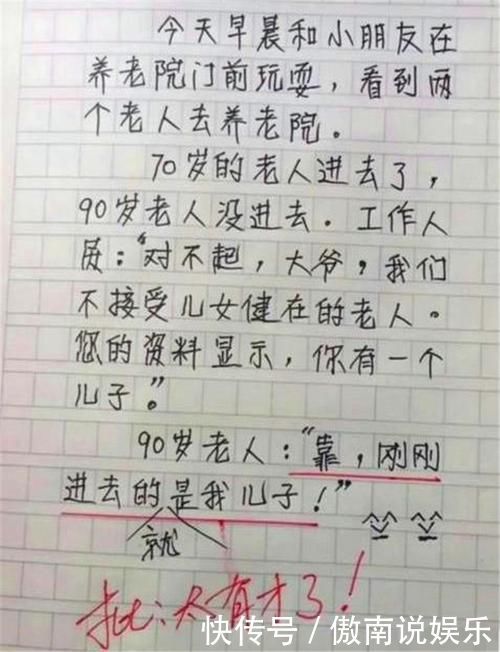 今天早晨和小朋友在
养老院门前玩耍，看到两
个老人去养老院。
70岁的老人进去了，
90岁老人没进去．工作人
员：“对不起，大爷，我们
不接受儿女健在的老人。
您的资料显示，你有一个
儿子”。
90岁老人：“靠，刚刚
进去的是我儿子！”
就
批：太有才了！
快传号／傲南说娱乐